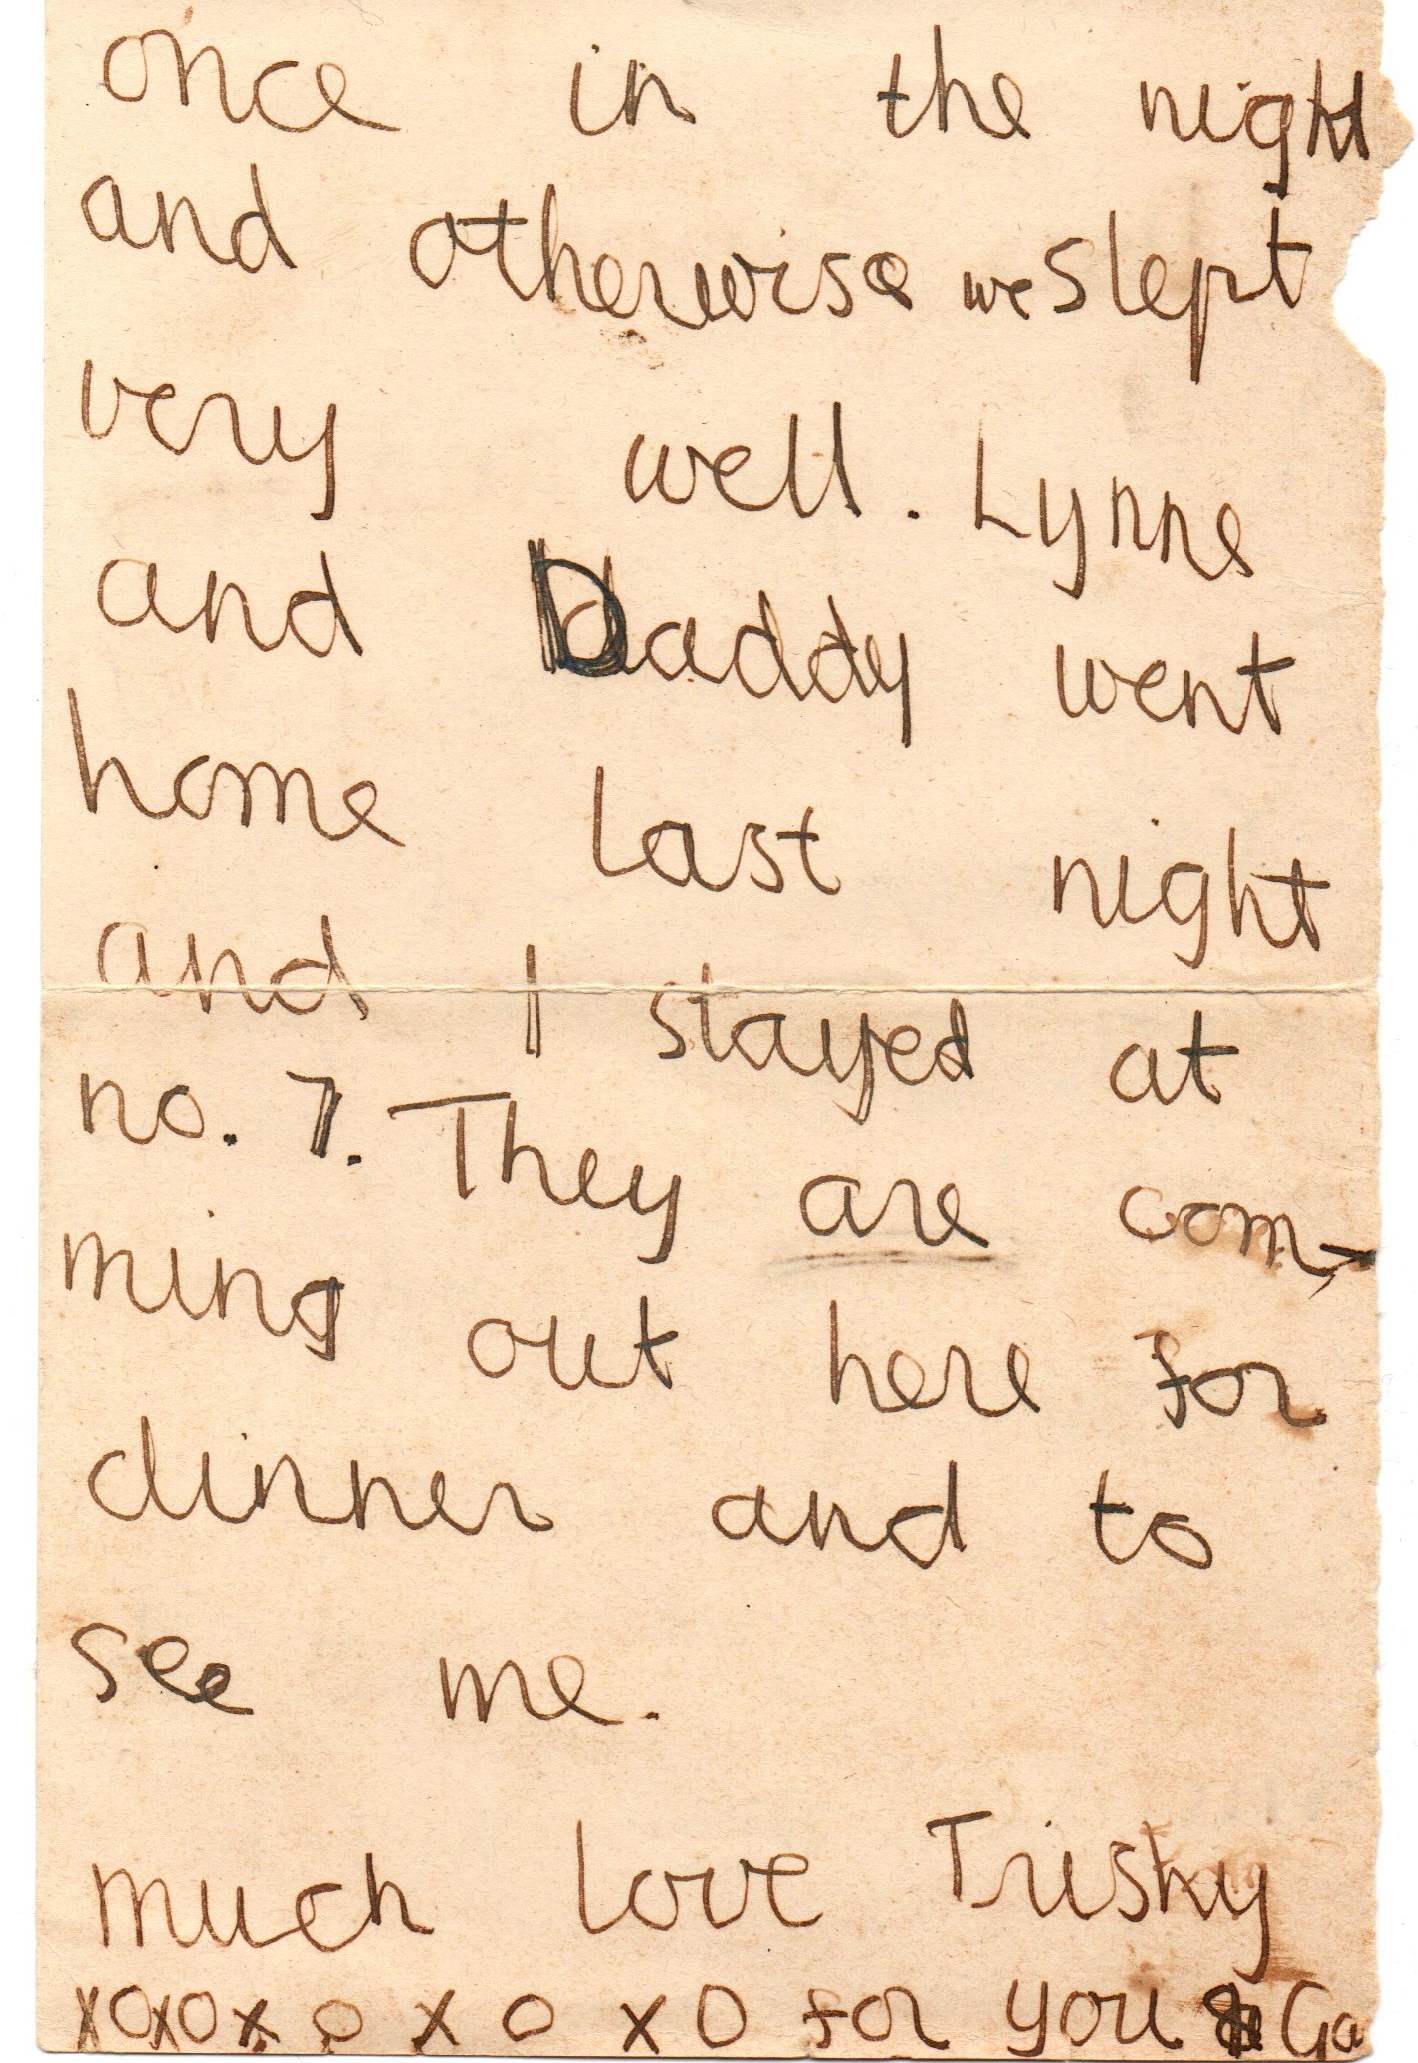 once in the night
and otherwise we slept
very well. Lynne
and Daddy went
home last night
and I stayed at
no. 7. They are com-
ming out here for
dinner and to
see me.
much love Trishy
xoxox o x o xo for you & Ga